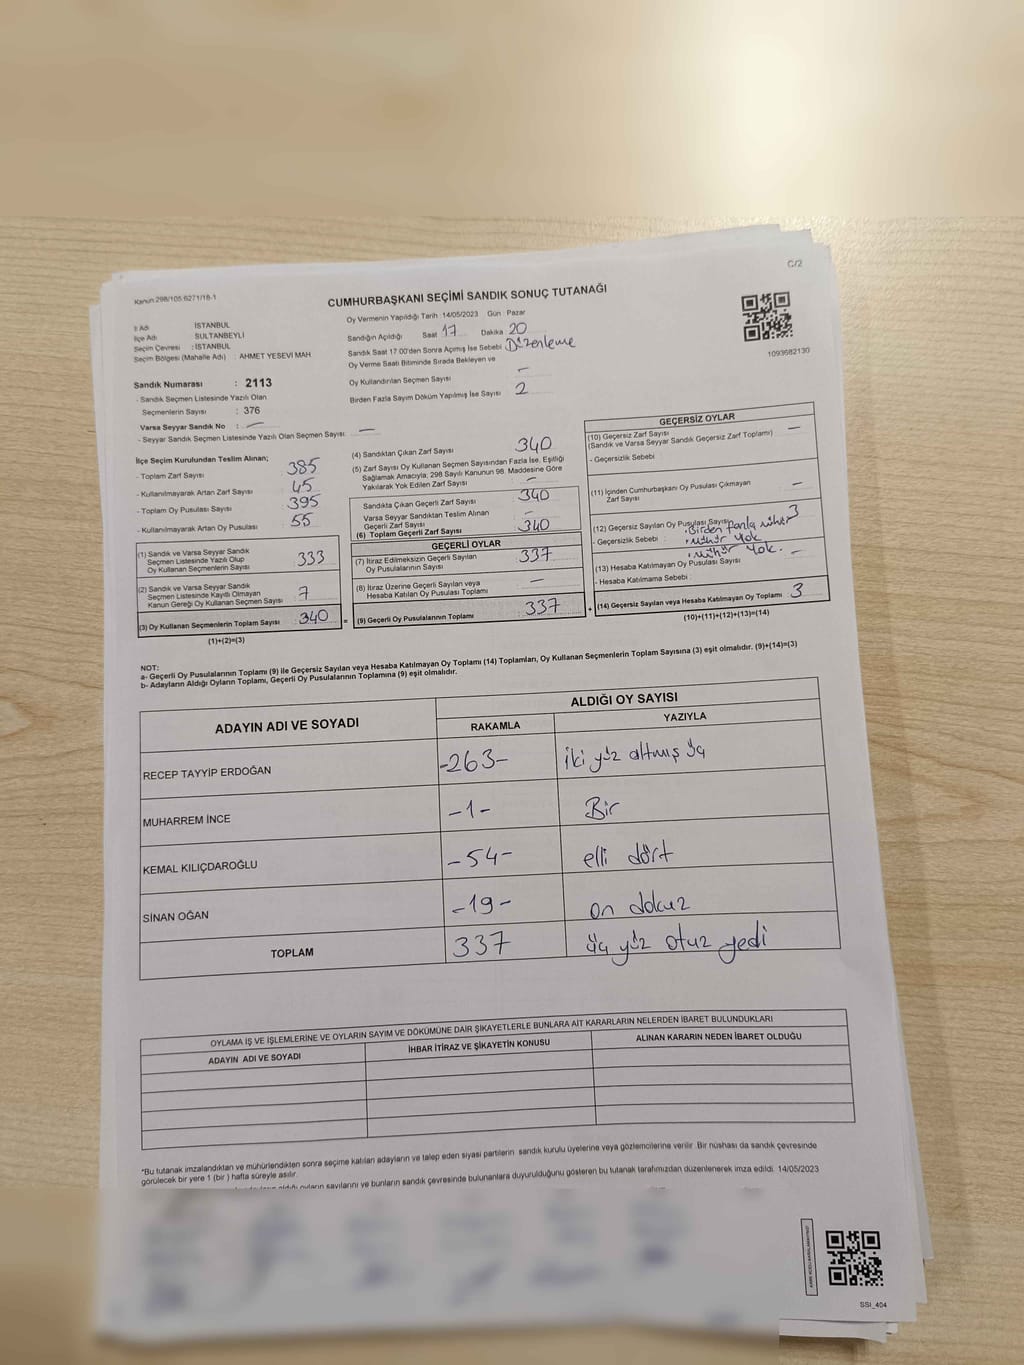 C/2
Kanun 298/105 6271/18-1
CUMHURBAŞKANI SEÇİMİ SANDIK SONUÇ TUTANAĞI
İl Adı İSTANBUL
İlçe Adı SULTANBEYLİ
Seçim Çevresi : İSTANBUL
Seçim Bölgesi (Mahalle Adı) : AHMET YESEVİ MAH
Oy Vermenin Yapıldığı Tarih : 14/05/2023 Gün : Pazar
Sandığın Açıldığı Saat 17 Dakika 20
Sandık Saat 17 00'den Sonra Açmış İse Sebebi Düzenleme
Oy Verme Saati Bitiminde Sırada Bekleyen ve
Oy Kullandırılan Seçmen Sayısı -
Birden Fazla Sayım Döküm Yapılmış İse Sayısı 2
1093682130
Sandık Numarası : 2113
- Sandık Seçmen Listesinde Yazılı Olan
Seçmenlerin Sayısı : 376
Varsa Seyyar Sandık No : -
- Seyyar Sandık Seçmen Listesinde Yazılı Olan Seçmen Sayısı: -
İlçe Seçim Kurulundan Teslim Alınan;
- Toplam Zarf Sayısı 385
- Kullanılmayarak Artan Zarf Sayısı 45
- Toplam Oy Pusulası Sayısı 395
- Kullanılmayarak Artan Oy Pusulası 55
(1) Sandık ve Varsa Seyyar Sandık
Seçmen Listesinde Yazılı Olup
Oy Kullanan Seçmenlerin Sayısı 333
(2) Sandık ve Varsa Seyyar Sandık
Seçmen Listesinde Kayıtlı Olmayan
Kanun Gereği Oy Kullanan Seçmen Sayısı 7
(3) Oy Kullanan Seçmenlerin Toplam Sayısı 340
(1)+(2)=(3)
(4) Sandıktan Çıkan Zarf Sayısı 340
(5) Zarf Sayısı Oy Kullanan Seçmen Sayısından Fazla İse, Eşitliği
Sağlamak Amacıyla; 298 Sayılı Kanunun 98. Maddesine Göre
Yakılarak Yok Edilen Zarf Sayısı -
Sandıkta Çıkan Geçerli Zarf Sayısı 340
Varsa Seyyar Sandıktan Teslim Alınan
Geçerli Zarf Sayısı -
(6) Toplam Geçerli Zarf Sayısı 340
GEÇERLİ OYLAR
(7) İtiraz Edilmeksizin Geçerli Sayılan
Oy Pusulalarının Sayısı 337
(8) İtiraz Üzerine Geçerli Sayılan veya
Hesaba Katılan Oy Pusulası Toplamı -
= (9) Geçerli Oy Pusulalarının Toplamı 337
GEÇERSİZ OYLAR
(10) Geçersiz Zarf Sayısı
(Sandık ve Varsa Seyyar Sandık Geçersiz Zarf Toplamı) -
- Geçersizlik Sebebi
(11) İçinden Cumhurbaşkanı Oy Pusulası Çıkmayan
Zarf Sayısı -
(12) Geçersiz Sayılan Oy Pusulası Sayısı 3
- Geçersizlik Sebebi : Birden fazla mühür
mühür yok
mühür yok.
(13) Hesaba Katılmayan Oy Pusulası Sayısı -
- Hesaba Katılmama Sebebi :
+ (14) Geçersiz Sayılan veya Hesaba Katılmayan Oy Toplamı 3
(10)+(11)+(12)+(13)=(14)
NOT:
a- Geçerli Oy Pusulalarının Toplamı (9) ile Geçersiz Sayılan veya Hesaba Katılmayan Oy Toplamı (14) Toplamları, Oy Kullanan Seçmenlerin Toplam Sayısına (3) eşit olmalıdır. (9)+(14)=(3)
b- Adayların Aldığı Oyların Toplamı, Geçerli Oy Pusulalarının Toplamına (9) eşit olmalıdır.
ADAYIN ADI VE SOYADI ALDIĞI OY SAYISI
RAKAMLA YAZIYLA
RECEP TAYYİP ERDOĞAN -263- iki yüz altmış üç
MUHARREM İNCE -1- Bir
KEMAL KILIÇDAROĞLU -54- elli dört
SİNAN OĞAN -19- on dokuz
TOPLAM 337 üç yüz otuz yedi
OYLAMA İŞ VE İŞLEMLERİNE VE OYLARIN SAYIM VE DÖKÜMÜNE DAİR ŞİKAYETLERLE BUNLARA AİT KARARLARIN NELERDEN İBARET BULUNDUKLARI
ADAYIN ADI VE SOYADI İHBAR İTİRAZ VE ŞİKAYETİN KONUSU ALINAN KARARIN NEDEN İBARET OLDUĞU
*Bu tutanak imzalandıktan ve mühürlendikten sonra seçime katılan adayların ve talep eden siyasi partilerin sandık kurulu üyelerine veya gözlemcilerine verilir. Bir nüshası da sandık çevresinde
görülecek bir yere 1 (bir ) hafta süreyle asılır.
oyların sayılarını ve bunların sandık çevresinde bulunanlara duyurulduğunu gösteren bu tutanak tarafımızdan düzenlenerek imza edildi. 14/05/2023
SSI_404